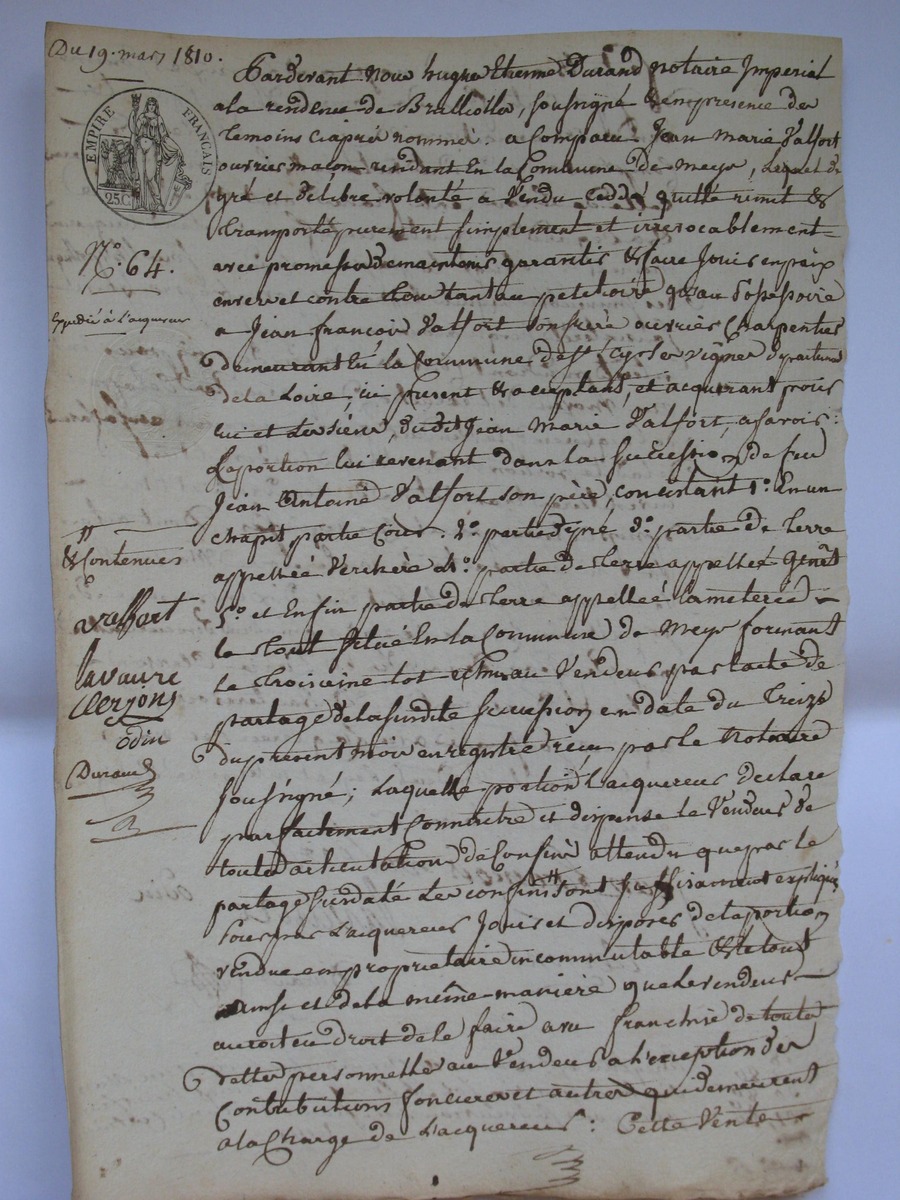 Du 19. mars 1810.
EMPIRE FRANÇAIS
25C.
N.° 64.
Expedié à l'acquereur
Pardevant Nous hugue Etienne Durand notaire Imperial
ala residence de soussigné & en presence des
temoins ciaprés nommés. a Comparu Jean Marie Valfort
ouvrier maçon residant En la Commune de Meys, Lequel de
gré et delibre volonté a Vendu Cedé quitté remit &
transporté purement simplement et irrevocablement
avec promesse de maintenir garantir & faire Jouir en paix
envers et contre tous tant au petitoire qu'au possessoire
a Jean françois Valfort son frere ouvrier Charpentier
demeurant En la Commune de St Cyr les vignes departement
de la Loire, ici present & aceptant, et acquerant pour
lui et les siens, dudit Jean Marie Valfort, asavoir:
La portion lui revenant dans la succession de feu
Jean Antoine Valfort son père, consistant 1.° En un
chapit partie Cour. 2.° partie de pré 3.° partie de terre
appellée Verchère 4.° partie de terre appellée Genêt
5.° et Enfin partie de terre appellée Lameterie
le tout situé En la Commune de Meys formant
le troisieme lot echu au Vendeur par l'acte de
partage de la susdite succession en date du treize
du present mois enregistré reçu par le Notaire
soussigné; Laquelle portion l'acquereur declare
parfaitement Connaitre et dispense le Vendeur de
toute de Confins attendu que par le
partage susdaté les confins sont suffisamment expliqués
pour par L'acquereur Jouir et disposer de la portion
vendue en proprietaire incommutable & le tout
ainsi et de la même maniere que le vendeur
auroit eu droit de le faire avec franchise de toutes
dettes personnelles au Vendeur a l'exception des
Contributions foncieres et autres qui demeurent
a la Charge de L'acquereur: Cette Vente
& Contenues
avalfort
lavaure
Clerjons
odin
Durand